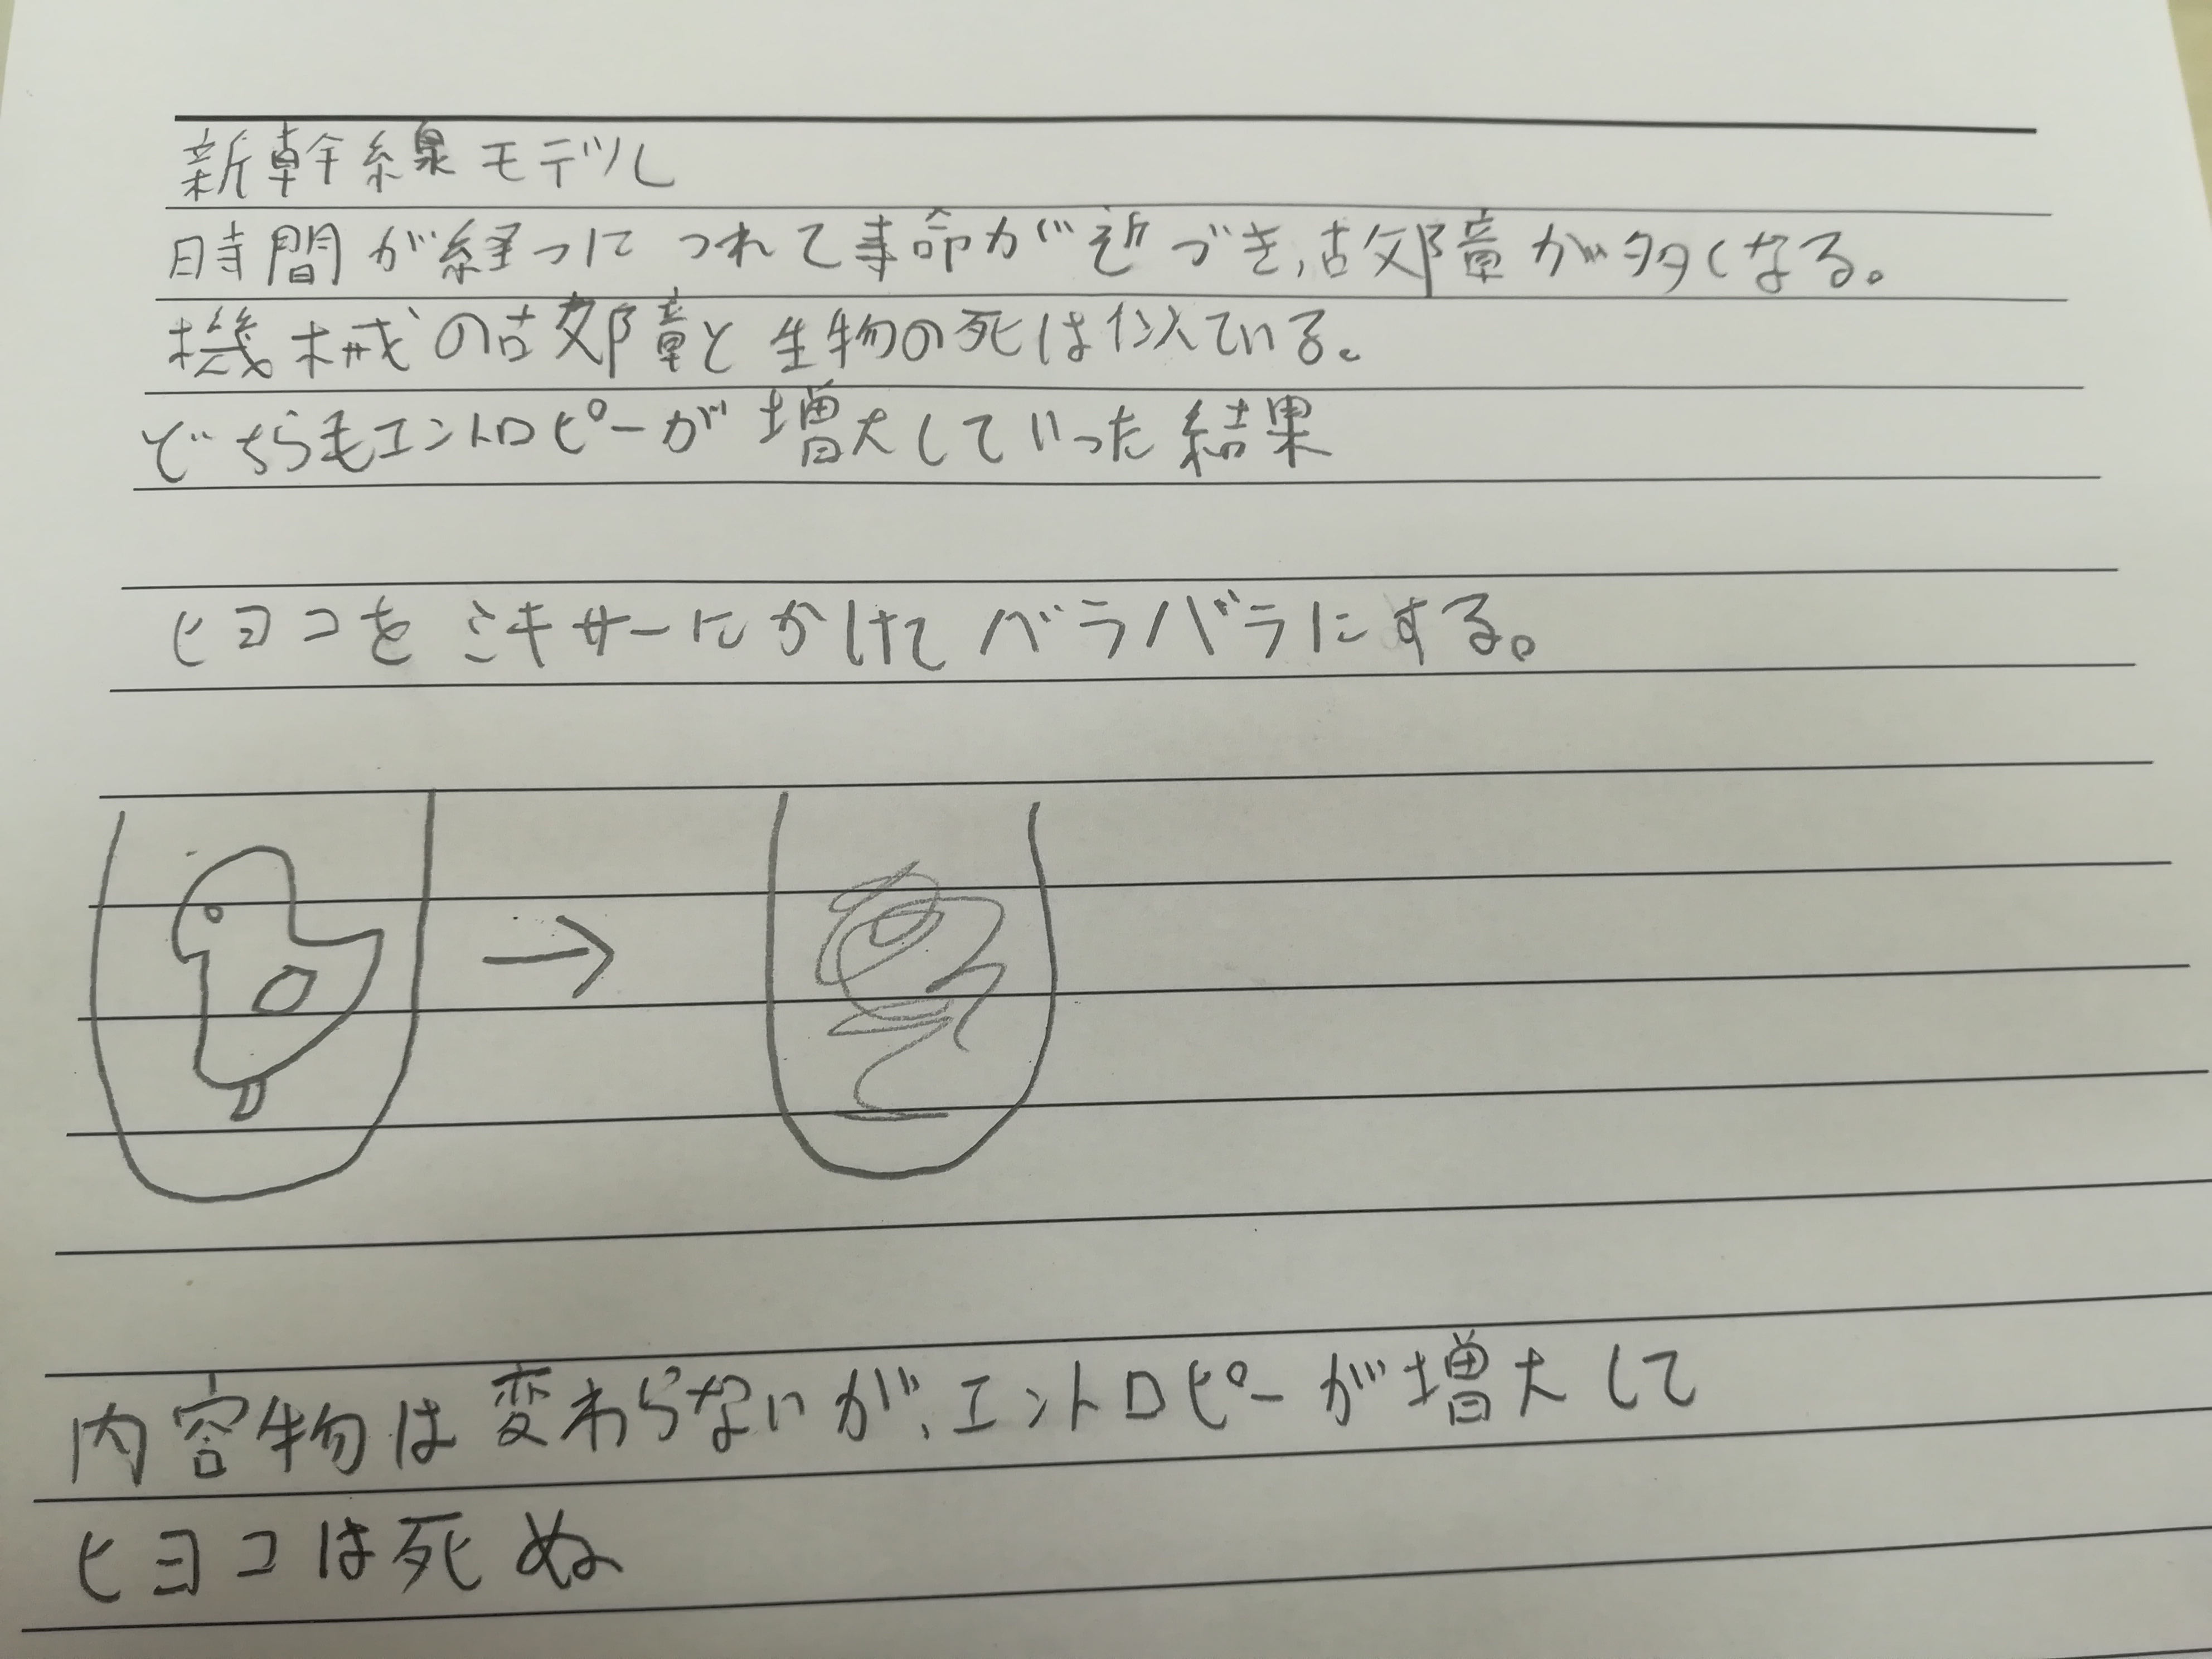 新幹線モデル
時間が経つにつれて寿命が近づき、故障が多くなる。
機械の故障と生物の死は似ている。
どちらもエントロピーが増大していった結果
ヒヨコをミキサーにかけてバラバラにする。
内容物は変わらないが、エントロピーが増大して
ヒヨコは死ぬ